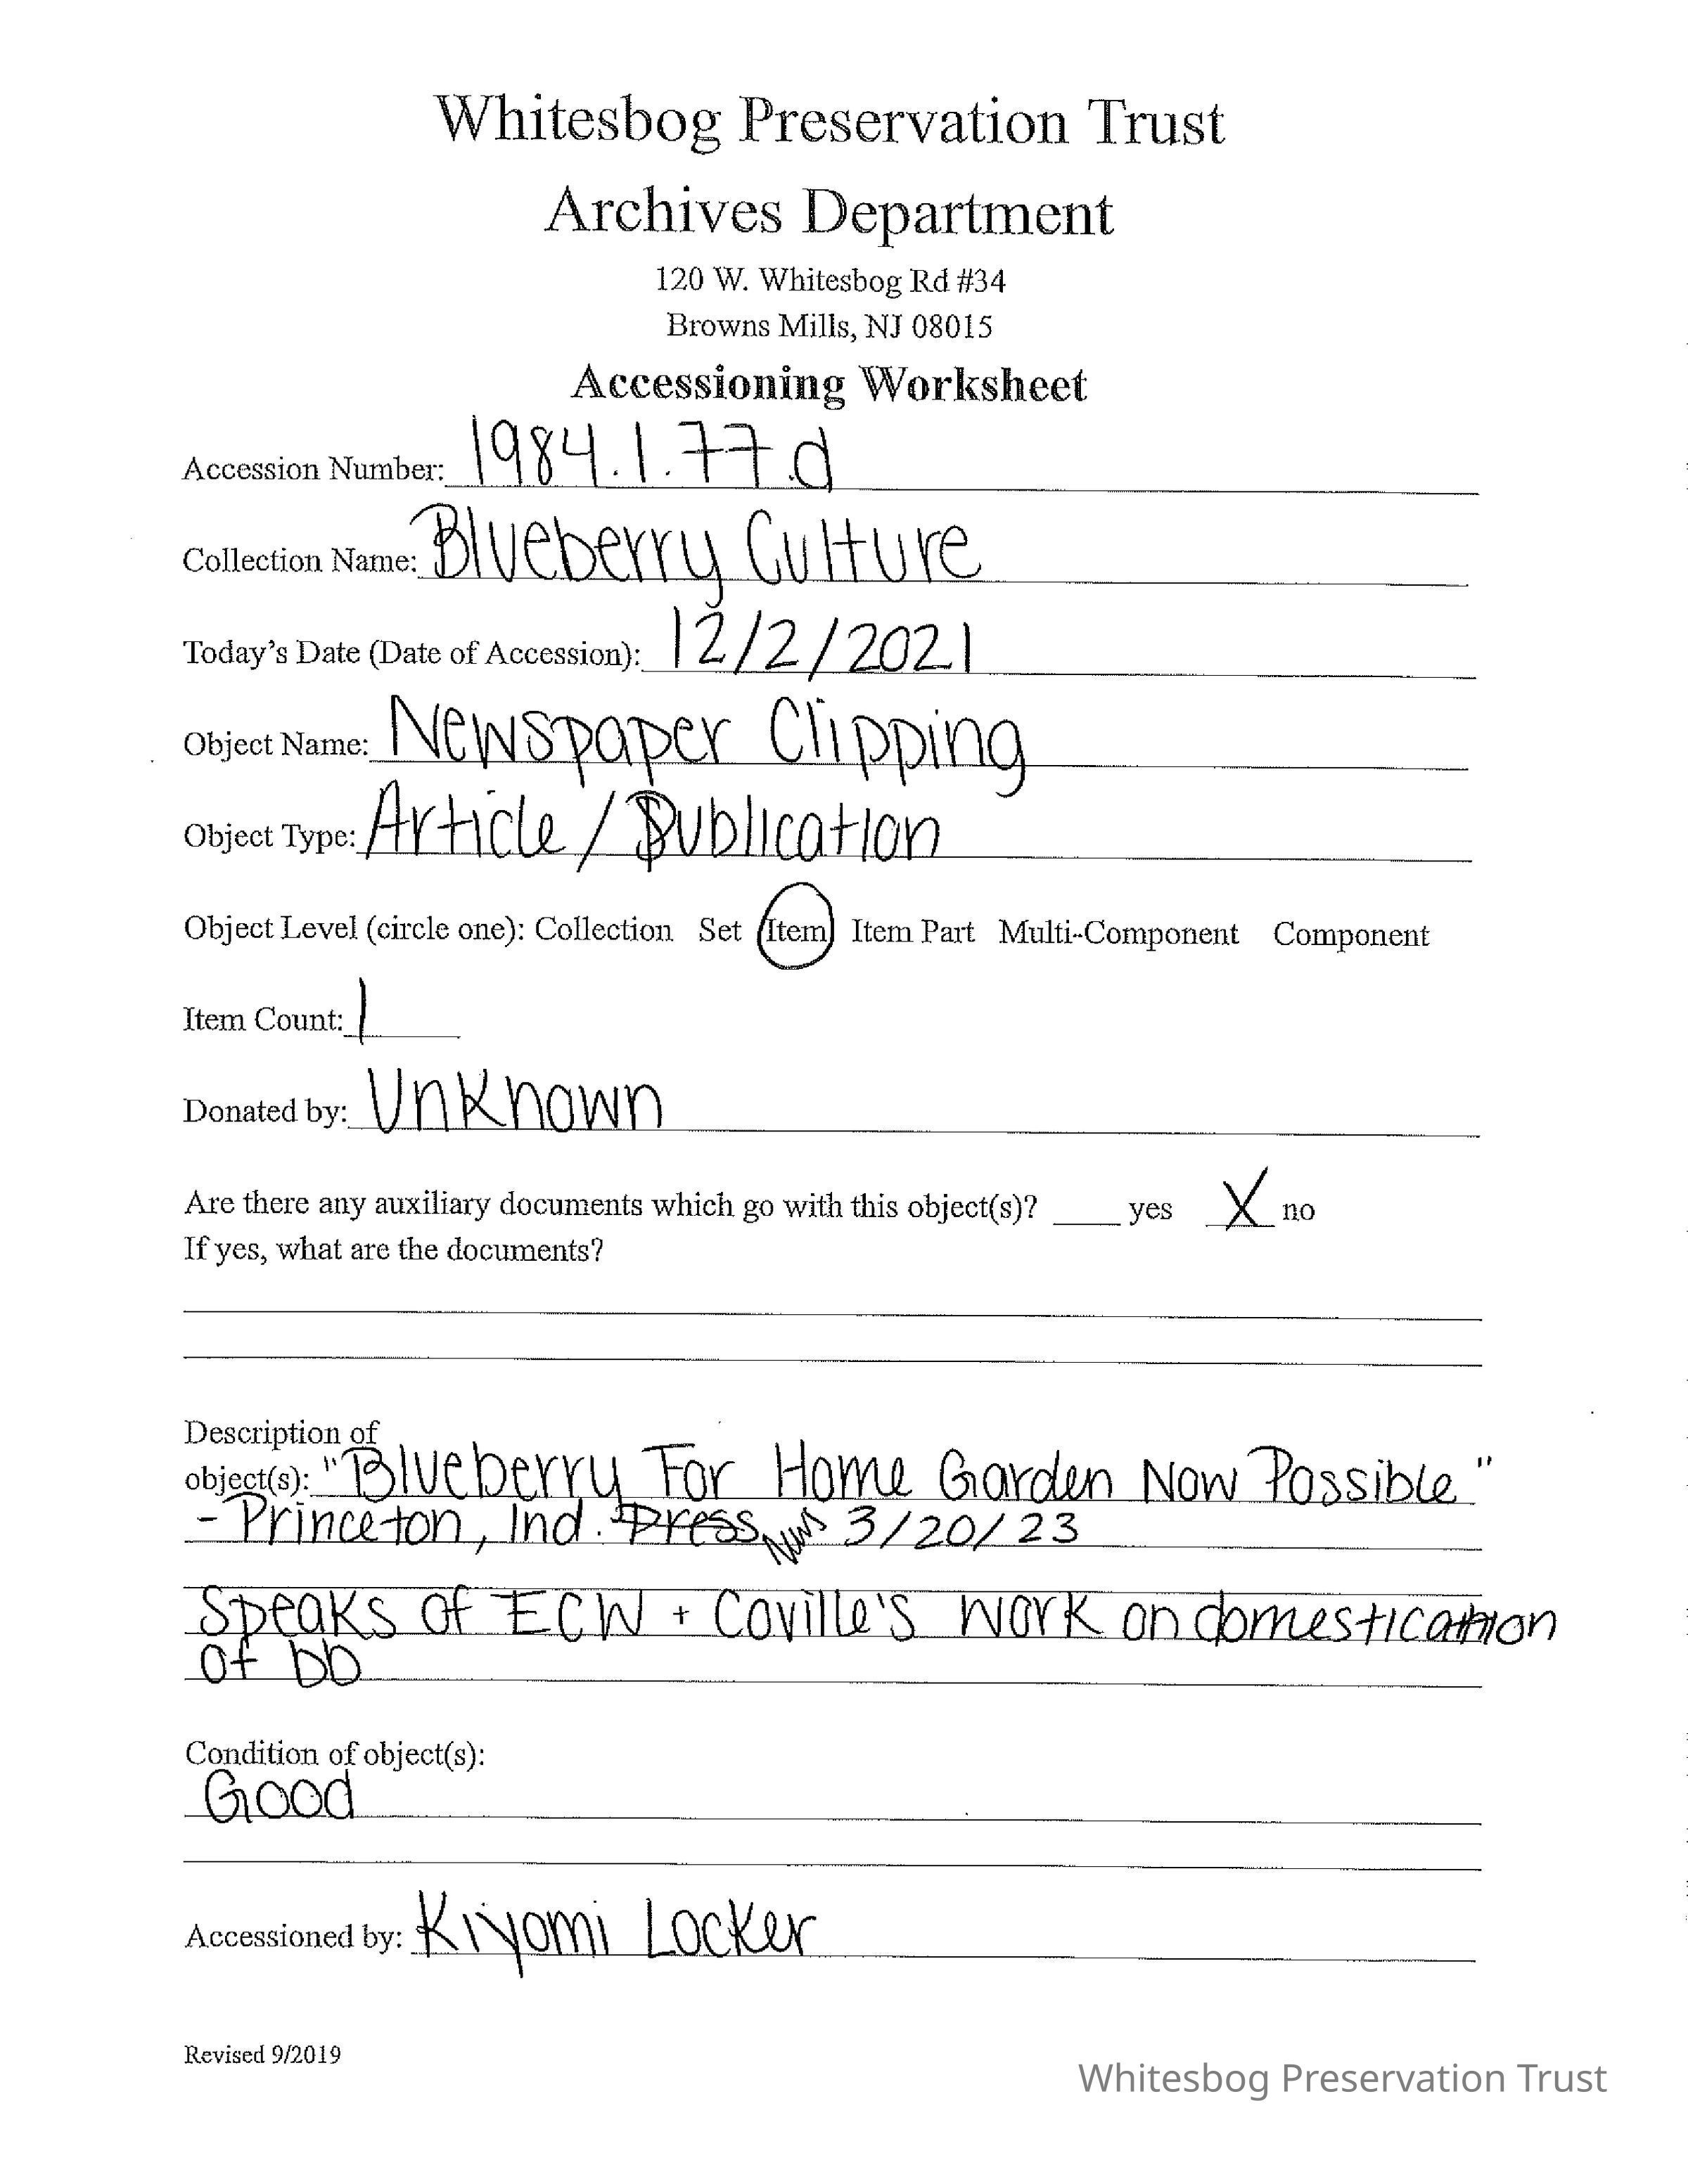 Whitesbog Preservation Trust
Archives Department
120 W. Whitesbog Rd #34
Browns Mills, NJ 08015
Accessioning Worksheet
Accession Number: 1984.1.77.d
Collection Name: Blueberry Culture
Today's Date (Date of Accession): 12/2/2021
Object Name: Newspaper Clipping
Object Type: Article / Publication
Object Level (circle one): Collection Set Item Item Part Multi-Component Component
Item Count: 1
Donated by: Unknown
Are there any auxiliary documents which go with this object(s)? ____ yes X no
If yes, what are the documents?
Description of
object(s): "Blueberry For Home Garden Now Possible"
- Princeton, Ind. Press News 3/20/23
Speaks of ECW + Coville's work on domestication
of bb
Condition of object(s):
Good
Accessioned by: Kiyomi Locker
Revised 9/2019
Whitesbog Preservation Trust